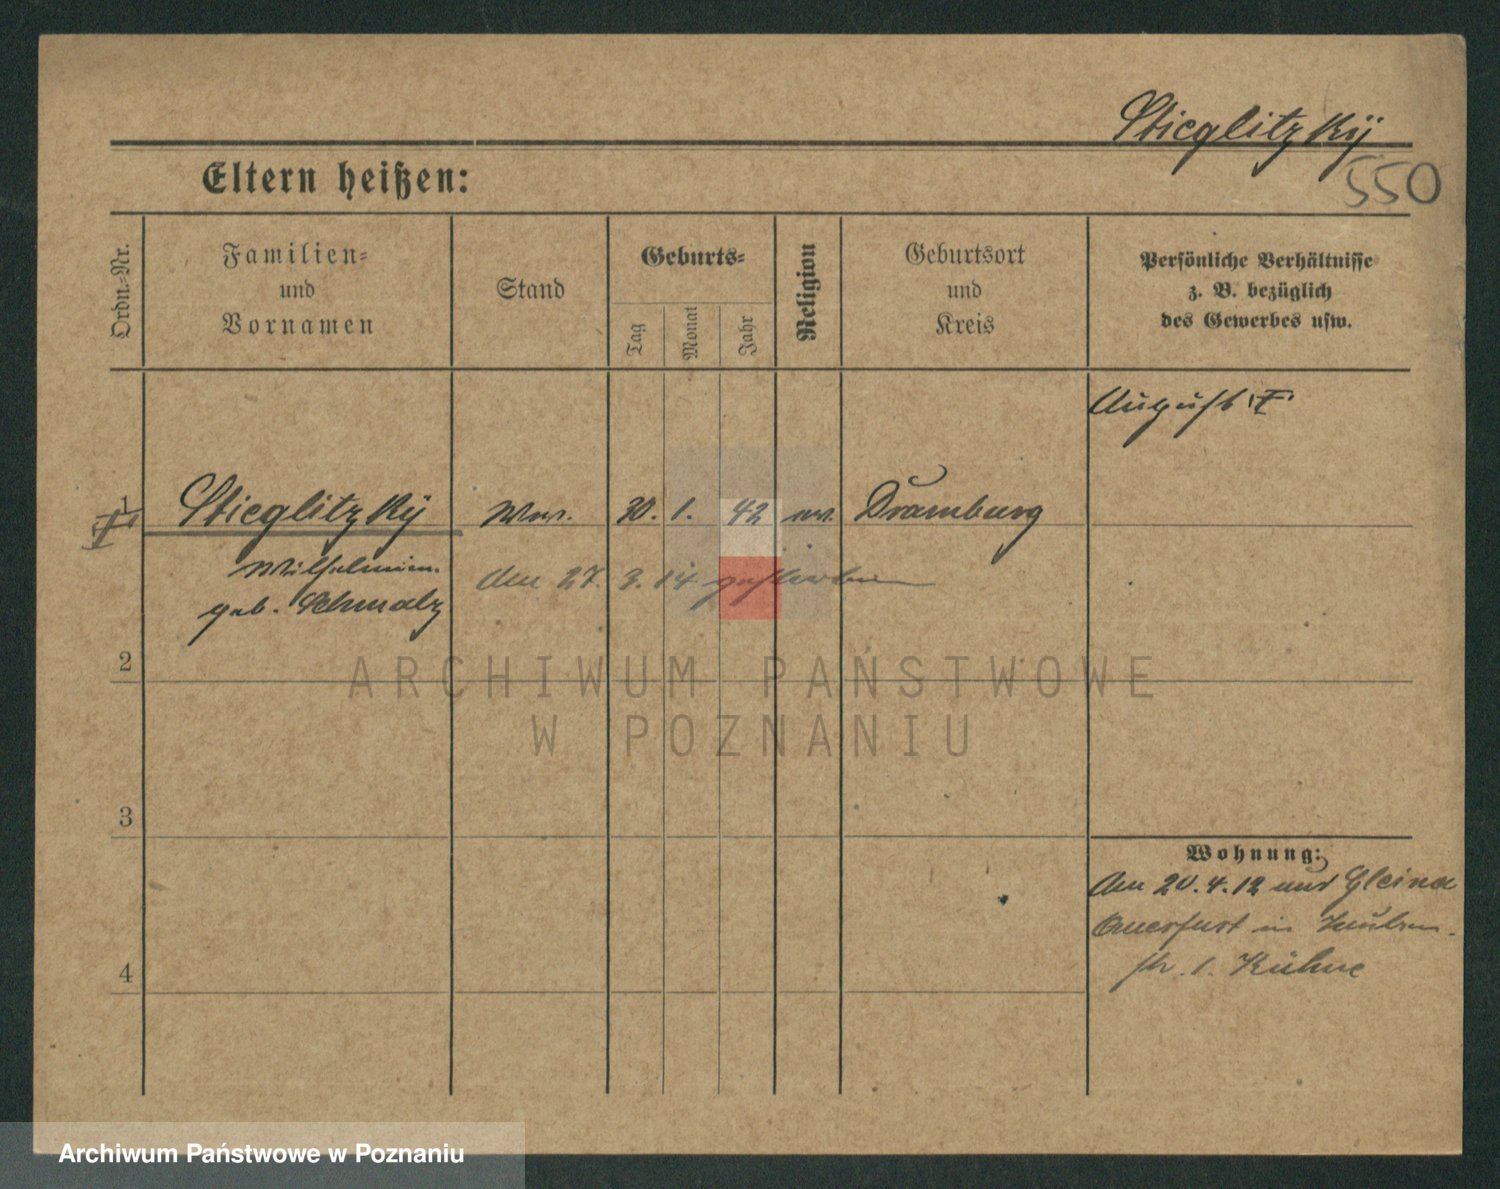 Stieglitzky
550
Eltern heißen:
Ordn.-Nr.
Familien-
und
Vornamen
Stand
Geburts-
Tag
Monat
Jahr
Religion
Geburtsort
und
Kreis
Persönliche Verhältnisse
z. B. bezüglich
des Gewerbes usw.
August
1
Stieglitzky
Ww.
30. 1. 42
ev.
Dramburg
Wilhelmine
geb. Schmalz
den 27. 3. 14 gestorben
2
ARCHIWUM PAŃSTWOWE
W POZNANIU
3
Wohnung:
den 20.4.12 aus Gleina
Querfurt in
str. 1. Kühne
4
Archiwum Państwowe w Poznaniu